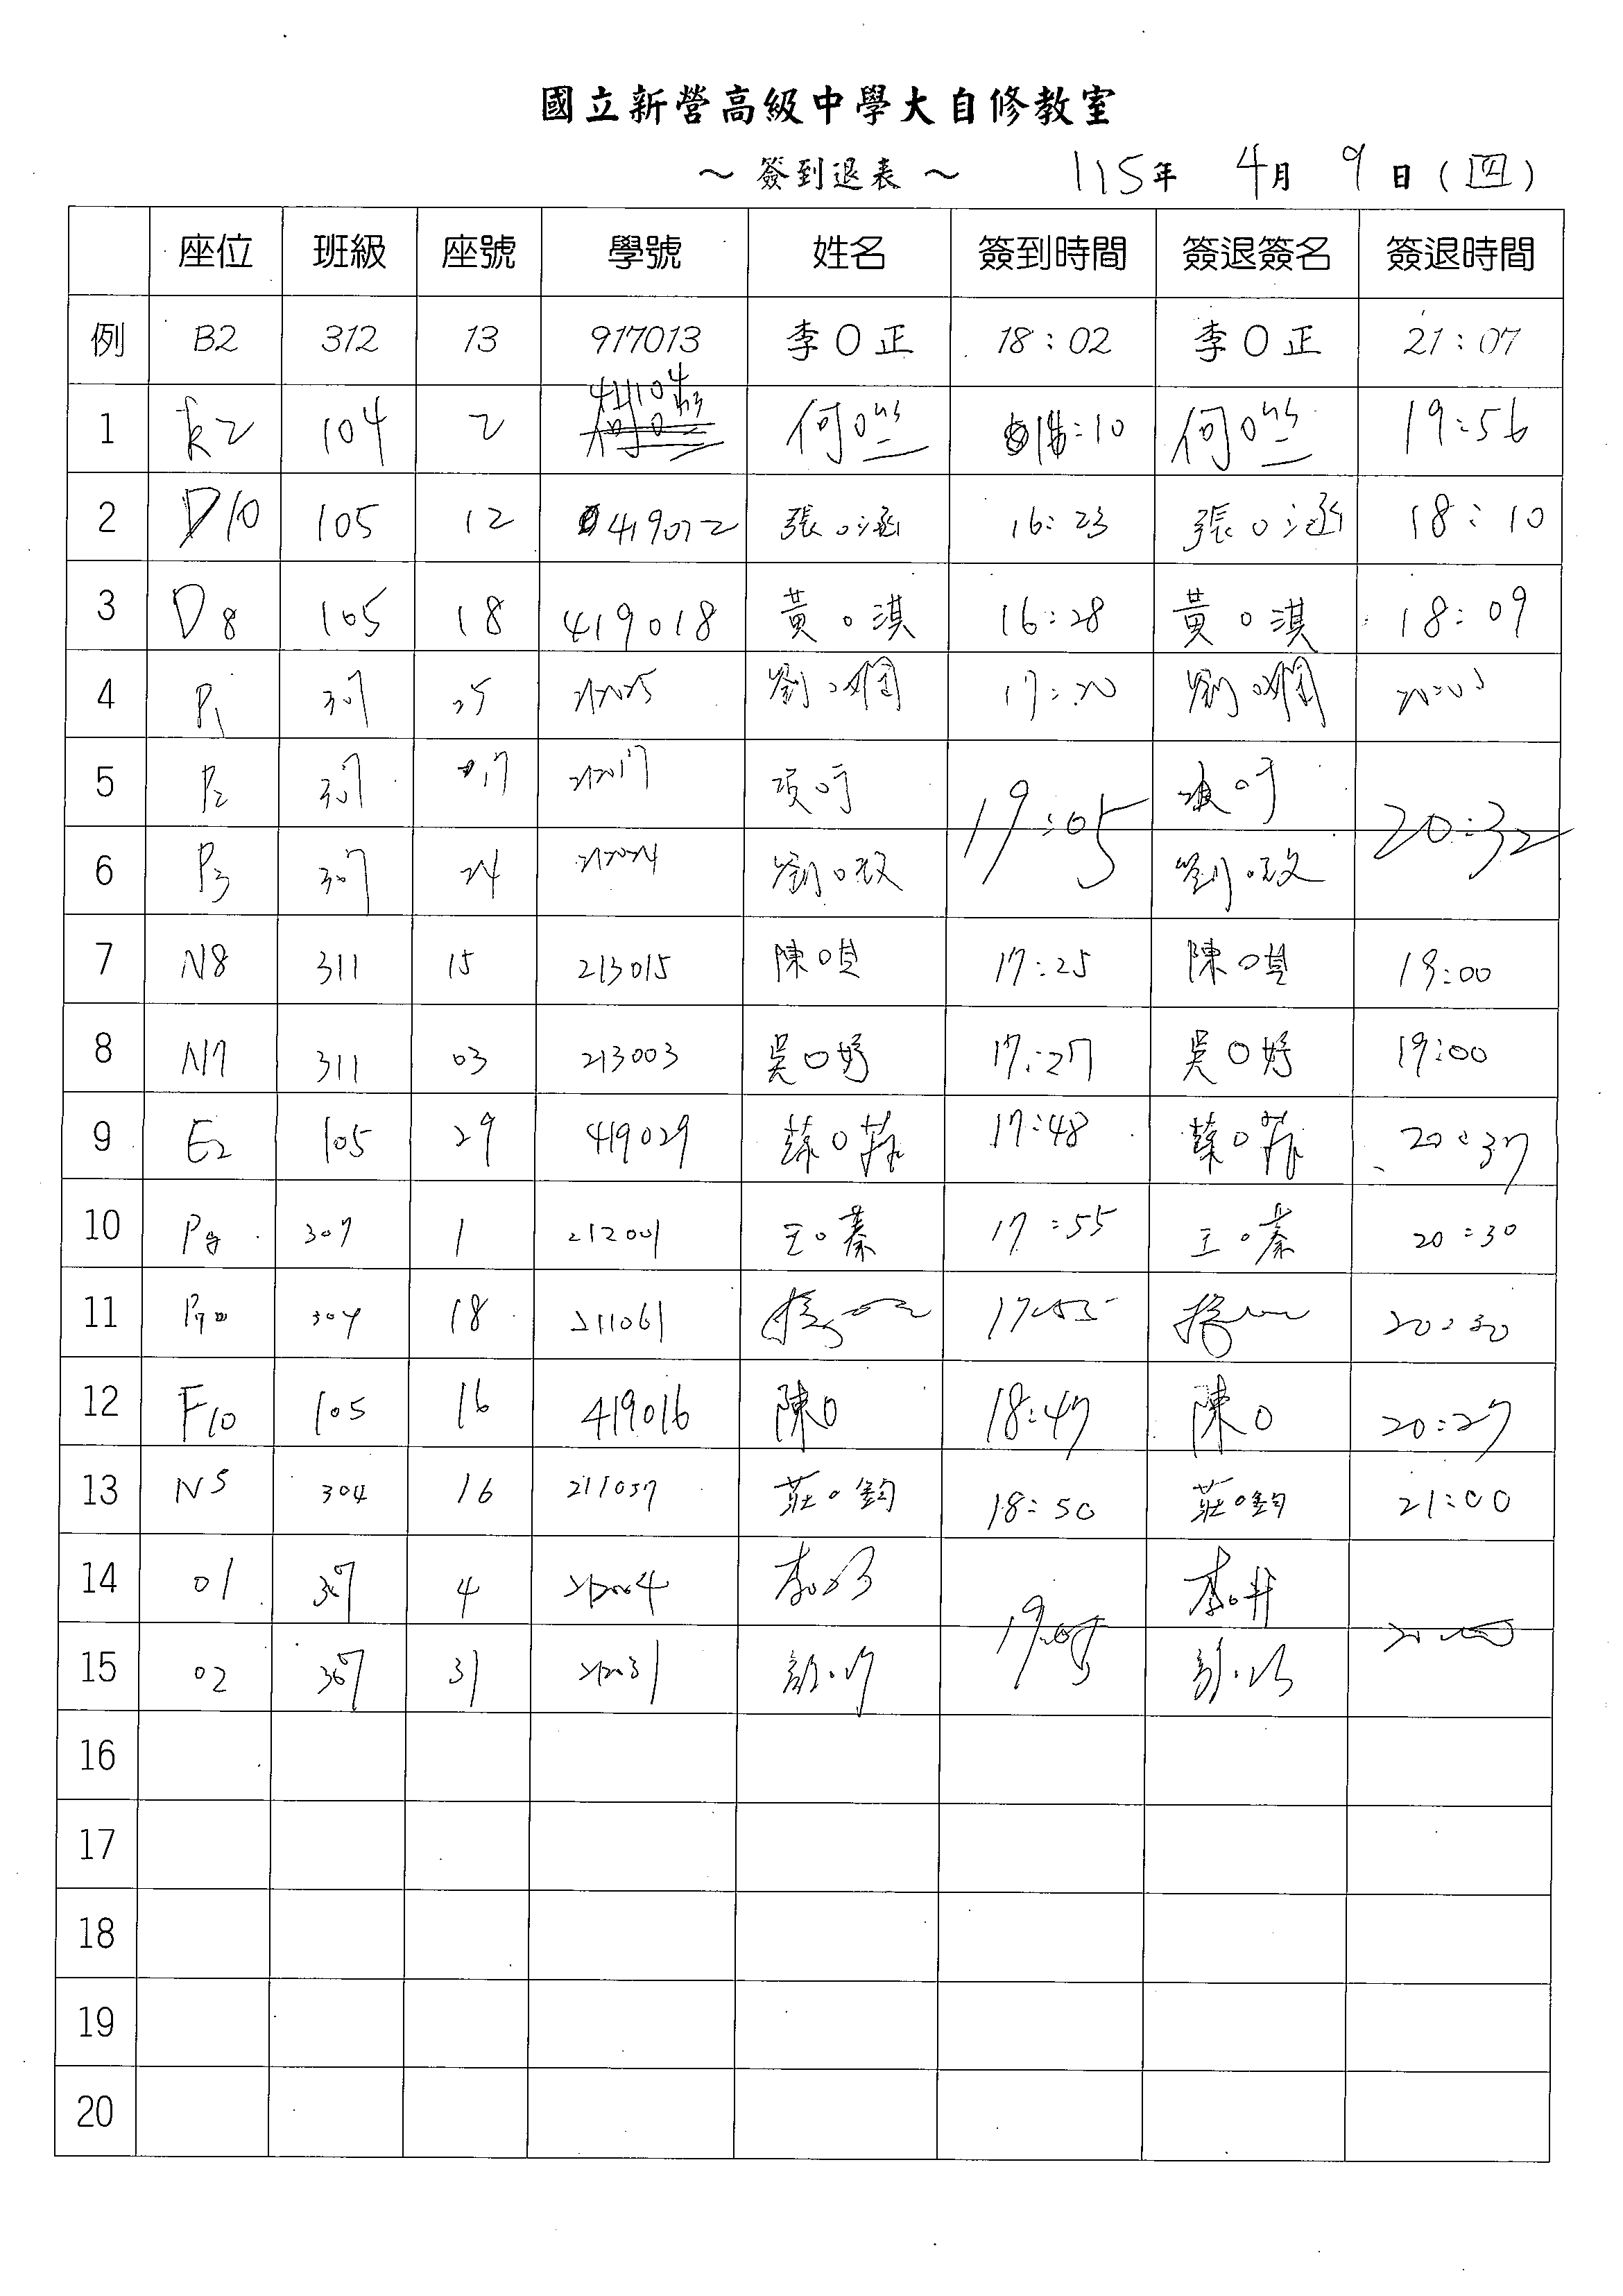 國立新營高級中學大自修教室
～ 簽到退表 ～ 115年 4月 9日(四)
座位 班級 座號 學號 姓名 簽到時間 簽退簽名 簽退時間
例 B2 312 13 917013 李O正 18:02 李O正 21:07
1 k2 104 2 何O :10 何O 19:56
2 D10 105 12 419012 張O涵 16:23 張O涵 18:10
3 D8 105 18 419018 黃O淇 16:28 黃O淇 18:09
4 P1 307 25 212025 劉O 17:20 劉O
5 P2 307 17 212017 19:05 20:32
6 P3 307 24 212024 劉O 劉O
7 N8 311 15 213015 陳O 17:25 陳O 19:00
8 N7 311 03 213003 吳O妤 17:27 吳O妤 19:00
9 E2 105 29 419029 O 17:48 O 20:37
10 307 1 212001 王O蓁 17:55 王O蓁 20:30
11 304 18 211061 17:55 20:30
12 F10 105 16 419016 陳O 18:47 陳O 20:27
13 N5 304 16 211057 莊O鈞 18:50 莊O鈞 21:00
14 O1 307 4 212004 李O 19:05 李O
15 O2 307 31 212031
16
17
18
19
20